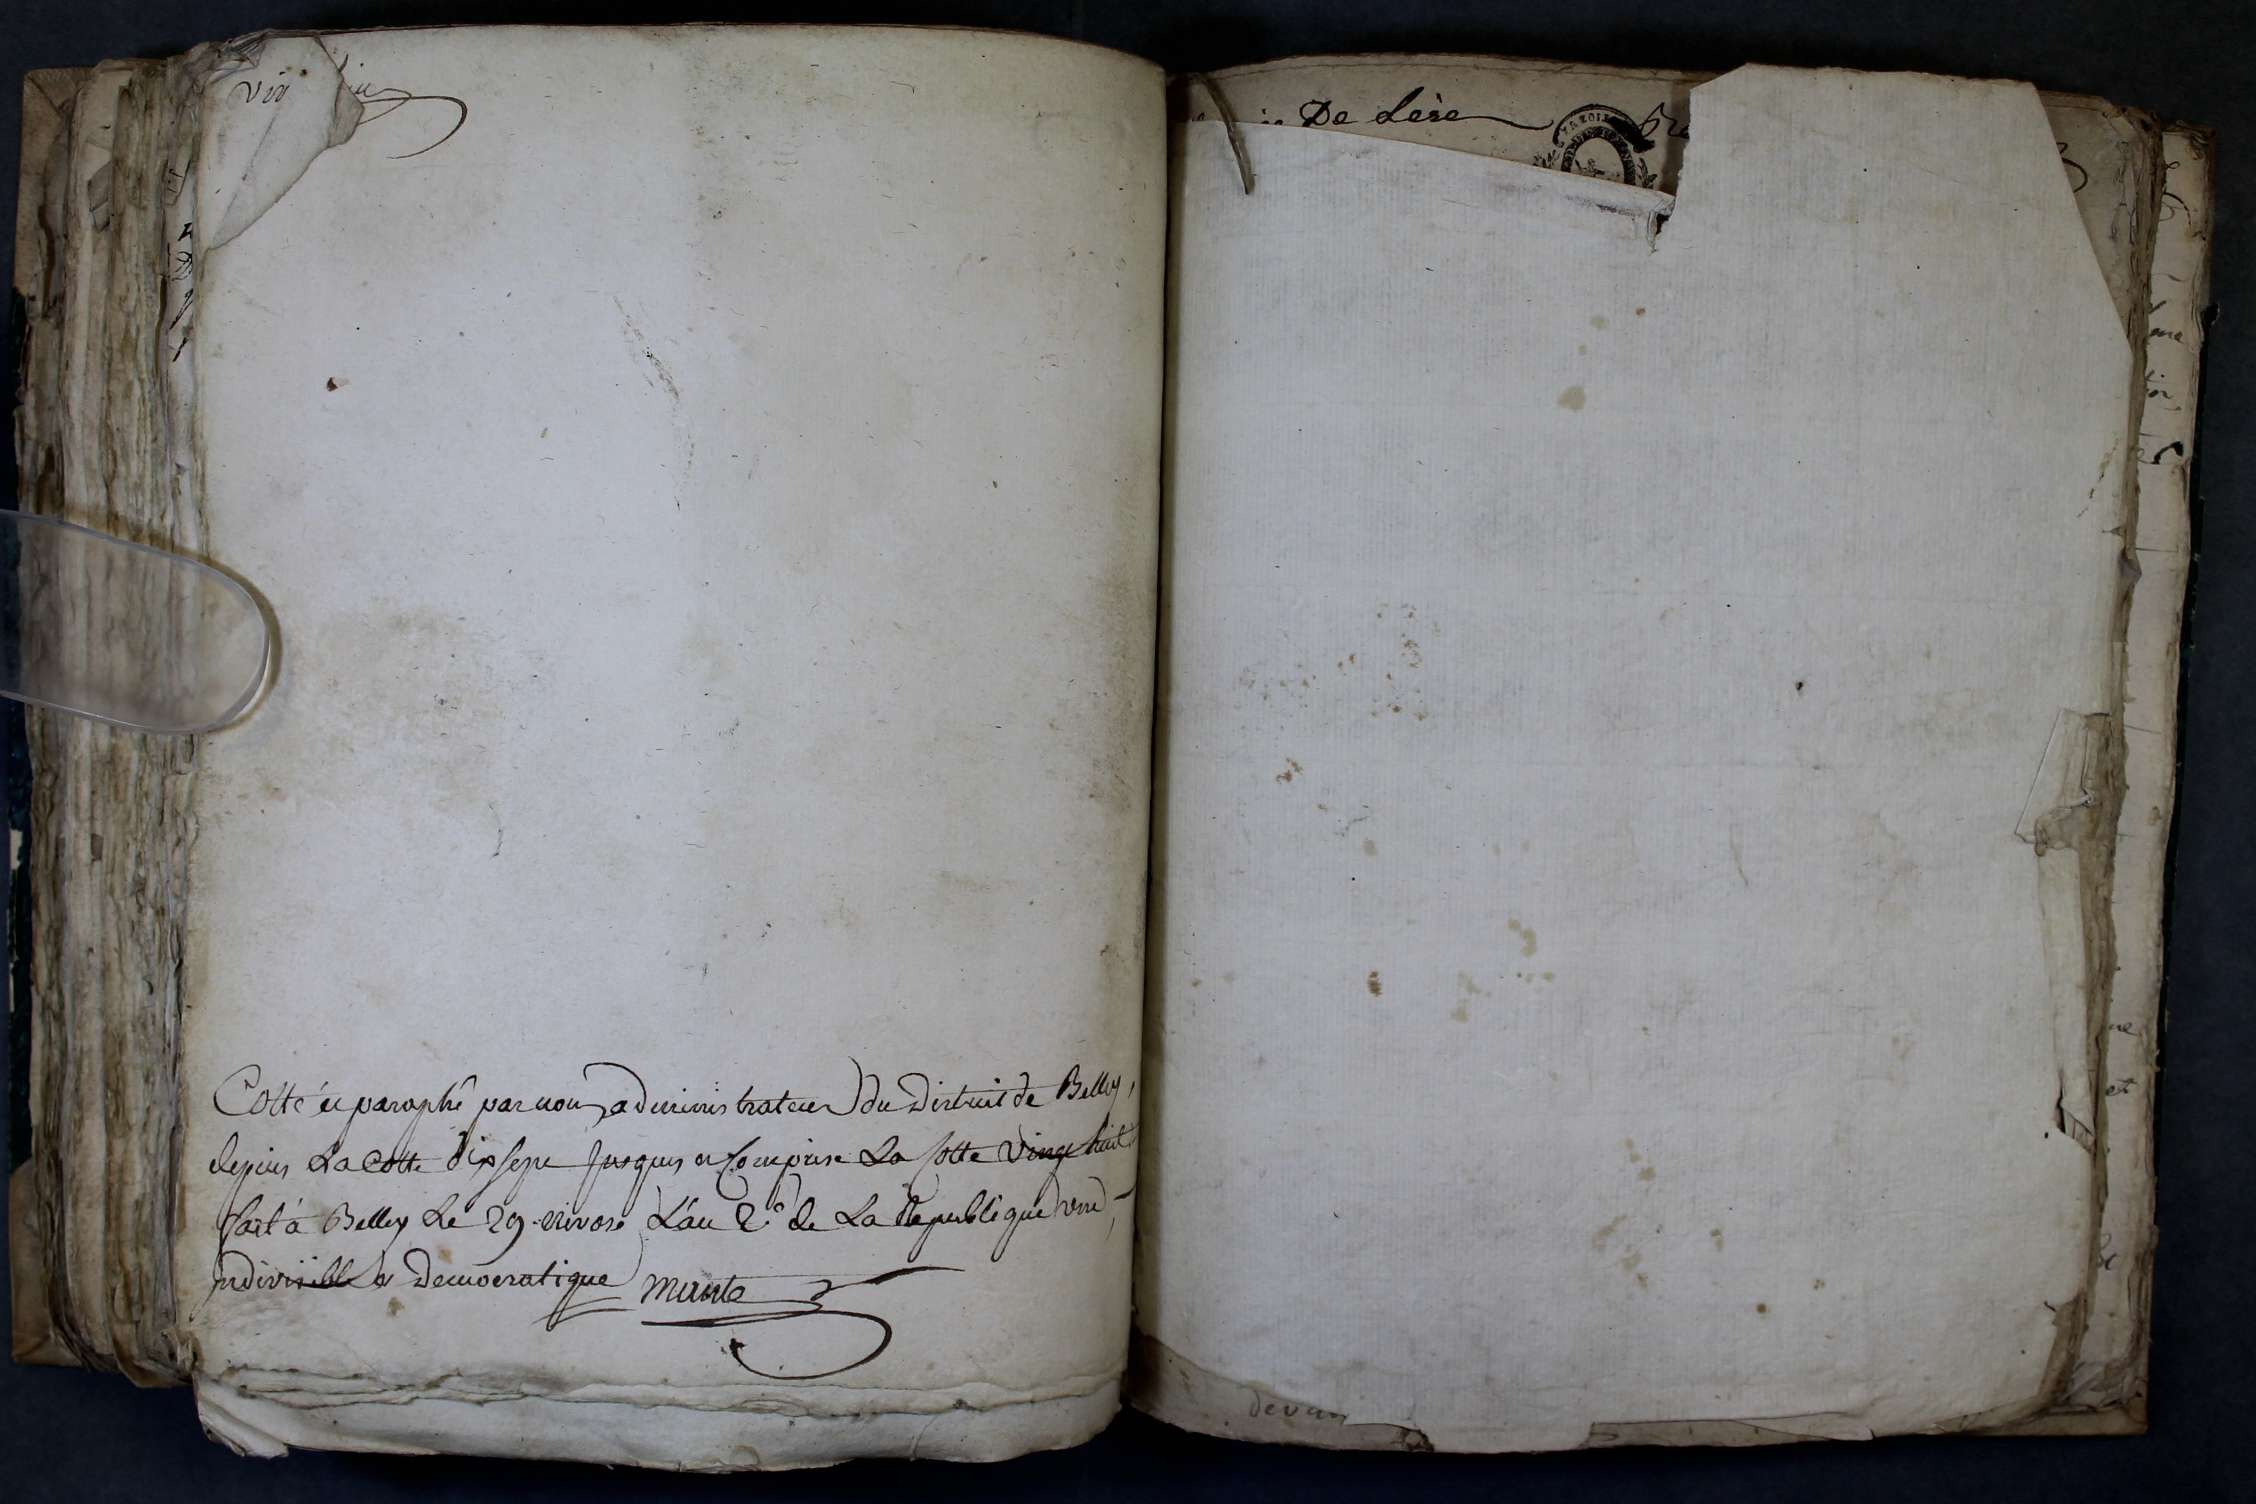 Cotté et paraphé par nous administrateur du District de Belley,
depuis La Cotte dix sept jusques et Comprise La Cotte vingt huit
fait à Belley Le 29 nivose L'an 2.e de La Republique une,
indivisible et Democratique Mante
De Lère
LA LOI
devan